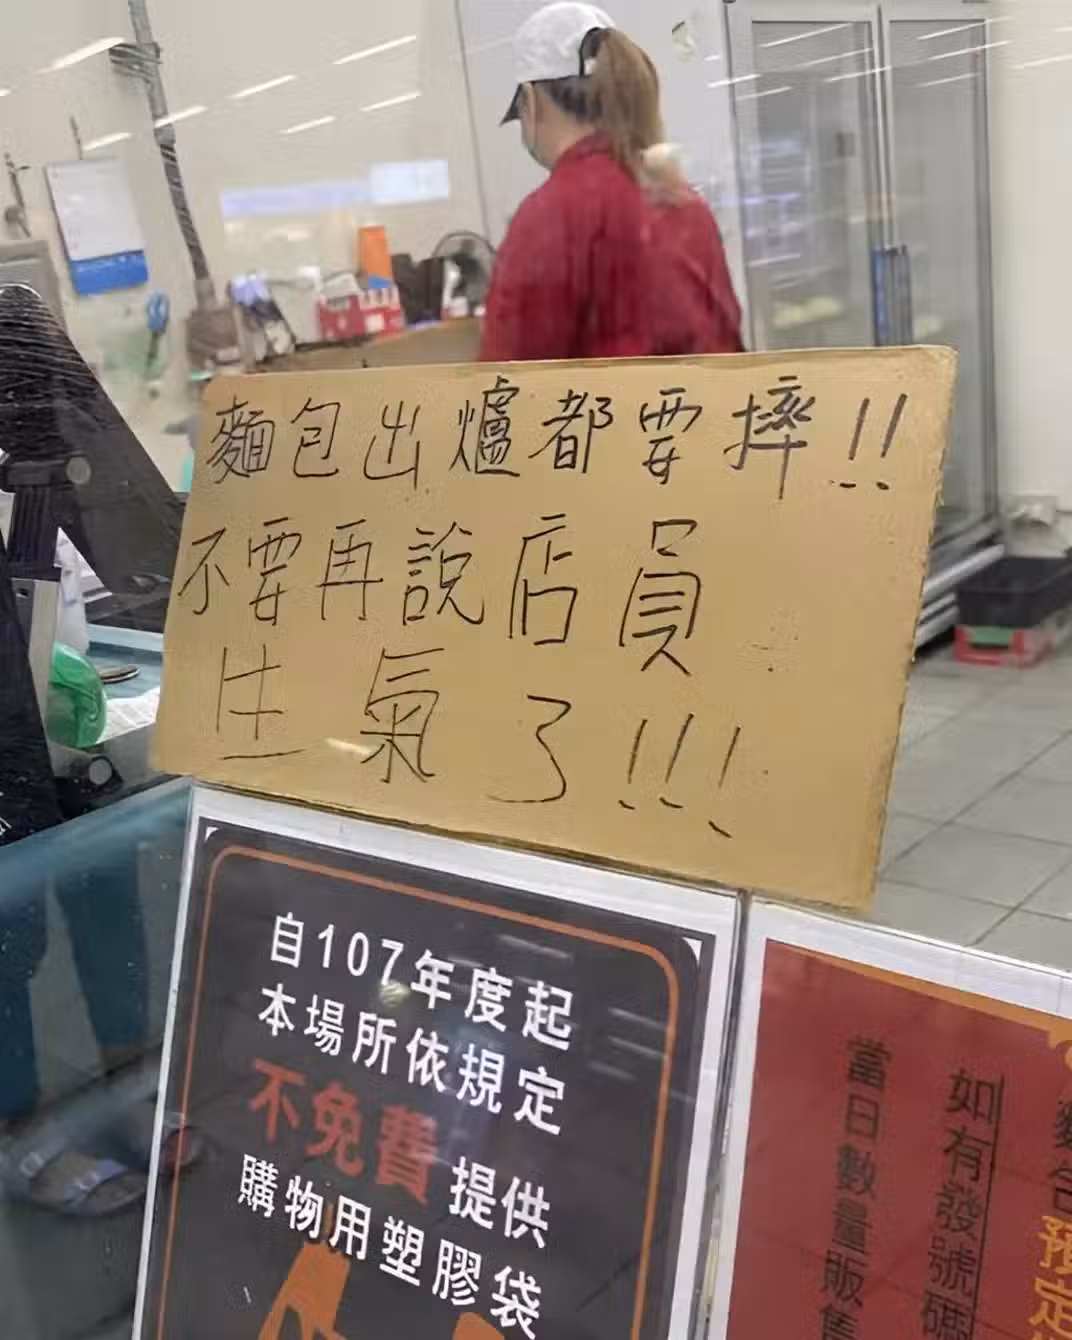 麵包出爐都要摔!!
不要再說店員
生氣了!!!
自107年度起
本場所依規定
不免費提供
購物用塑膠袋
如有發號碼
當日數量販售
預定